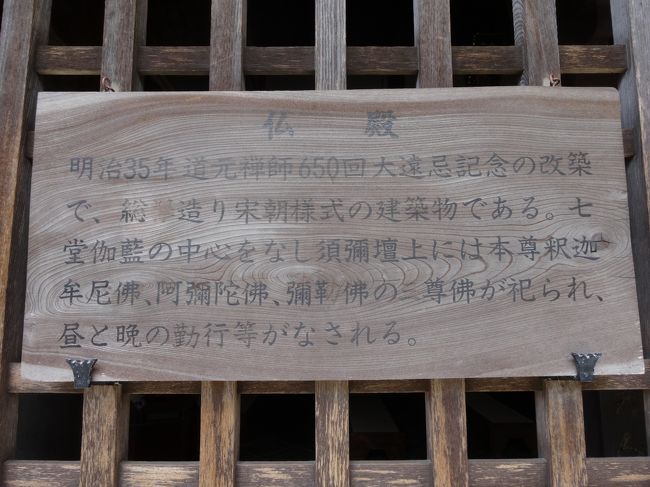 仏殿
明治35年道元禅師650回大遠忌記念の改築
で、総欅造り宋朝様式の建築物である。七
堂伽藍の中心をなし須彌壇上には本尊釈迦
牟尼佛、阿彌陀佛、彌勒佛の三尊佛が祀られ、
昼と晩の勤行等がなされる。